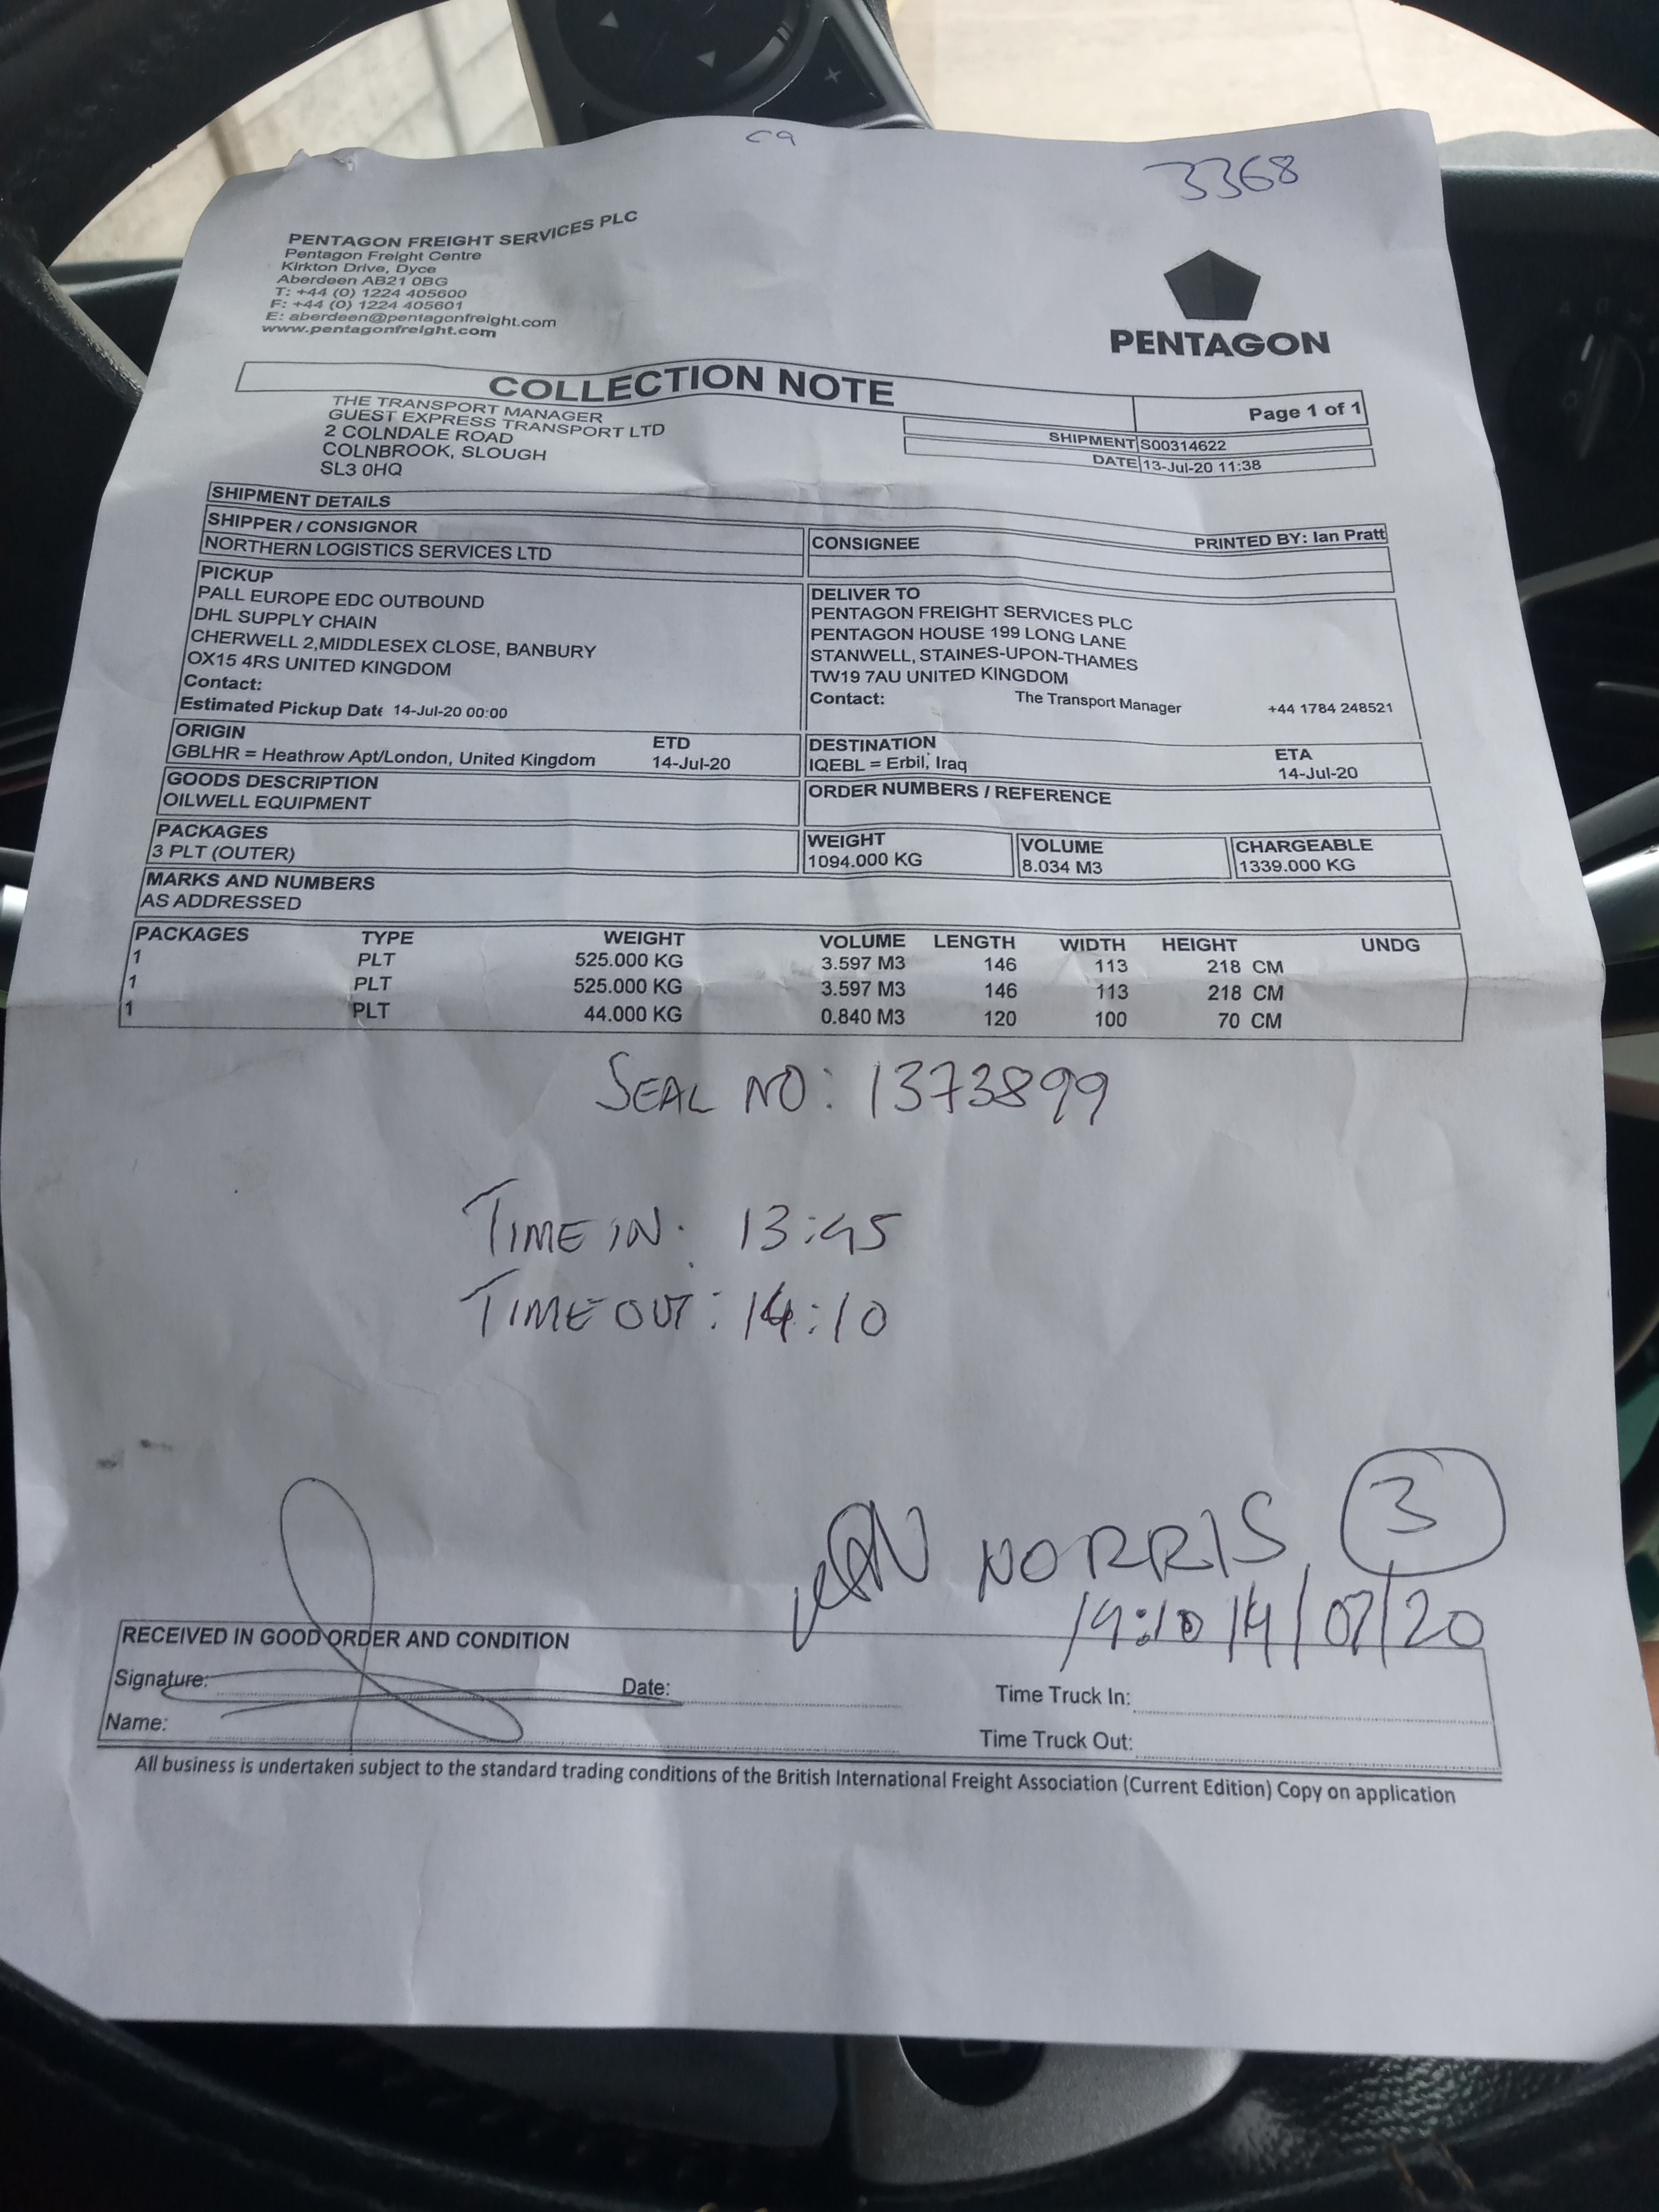 ca
3368
PENTAGON FREIGHT SERVICES PLC
Pentagon Freight Centre
Kirkton Drive, Dyce
Aberdeen AB21 0BG
T: +44 (0) 1224 405600
F: +44 (0) 1224 405601
E: aberdeen@pentagonfreight.com
www.pentagonfreight.com
PENTAGON
COLLECTION NOTE
Page 1 of 1
THE TRANSPORT MANAGER
GUEST EXPRESS TRANSPORT LTD
2 COLNDALE ROAD
COLNBROOK, SLOUGH
SL3 0HQ
SHIPMENT S00314622
DATE 13-Jul-20 11:38
SHIPMENT DETAILS
PRINTED BY: Ian Pratt
SHIPPER / CONSIGNOR
NORTHERN LOGISTICS SERVICES LTD
CONSIGNEE
PICKUP
PALL EUROPE EDC OUTBOUND
DHL SUPPLY CHAIN
CHERWELL 2,MIDDLESEX CLOSE, BANBURY
OX15 4RS UNITED KINGDOM
Contact:
Estimated Pickup Date 14-Jul-20 00:00
DELIVER TO
PENTAGON FREIGHT SERVICES PLC
PENTAGON HOUSE 199 LONG LANE
STANWELL, STAINES-UPON-THAMES
TW19 7AU UNITED KINGDOM
Contact: The Transport Manager +44 1784 248521
ORIGIN ETD
GBLHR = Heathrow Apt/London, United Kingdom 14-Jul-20
DESTINATION ETA
IQEBL = Erbil, Iraq 14-Jul-20
GOODS DESCRIPTION
OILWELL EQUIPMENT
ORDER NUMBERS / REFERENCE
PACKAGES
3 PLT (OUTER)
WEIGHT
1094.000 KG
VOLUME
8.034 M3
CHARGEABLE
1339.000 KG
MARKS AND NUMBERS
AS ADDRESSED
PACKAGES TYPE WEIGHT VOLUME LENGTH WIDTH HEIGHT UNDG
1 PLT 525.000 KG 3.597 M3 146 113 218 CM
1 PLT 525.000 KG 3.597 M3 146 113 218 CM
1 PLT 44.000 KG 0.840 M3 120 100 70 CM
SEAL NO: 1373899
TIME IN: 13:45
TIME OUT: 14:10
NORRIS 3
14:10 14/07/20
RECEIVED IN GOOD ORDER AND CONDITION
Signature: Date: Time Truck In:
Name: Time Truck Out:
All business is undertaken subject to the standard trading conditions of the British International Freight Association (Current Edition) Copy on application